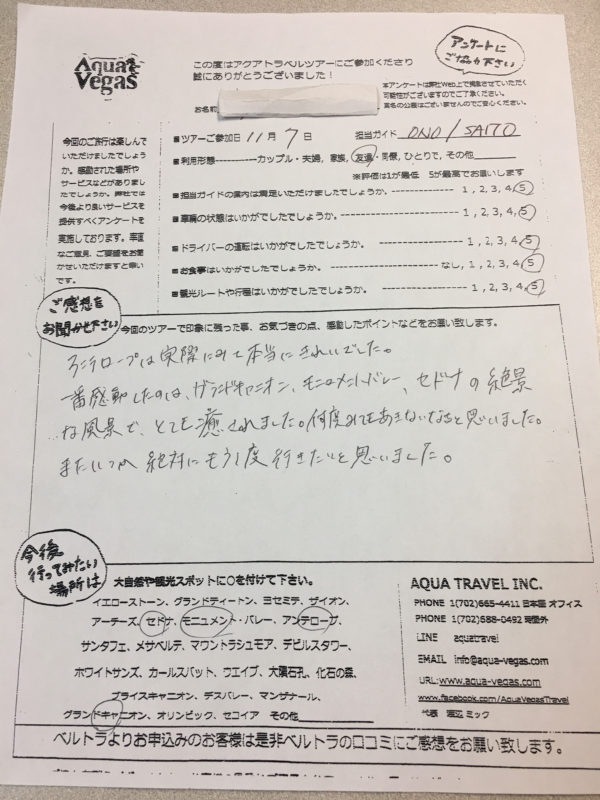 Aqua Vegas
この度はアクアトラベルツアーにご参加くださり
誠にありがとうございました！
アンケートに
ご協力下さい
本アンケートは弊社Web上で掲載させていただく
可能性がございますのでご了承ください。
実名の公開はございませんのでご安心ください。
お名前
今回のご旅行は楽しんで
いただけましたでしょう
か。感動された場所や
サービスなどがありまし
たでしょうか。弊社では
今後より良いサービスを
提供すべくアンケートを
実施しております。率直
なご意見、ご要望をお聞
かせいただけますと幸い
です。
■ツアーご参加日 11月 7日 担当ガイド ONO / SAITO
■利用形態-----------カップル・夫婦, 家族, 友達・同僚, ひとりで, その他
※評価は1が最低 5が最高でお願いします
■担当ガイドの案内は満足いただけましたでしょうか。 1 , 2, 3, 4, 5
■車輌の状態はいかがでしたでしょうか。 1 , 2, 3, 4, 5
■ドライバーの運転はいかがでしたでしょうか。 1 , 2, 3, 4, 5
■お食事はいかがでしたでしょうか。 なし, 1, 2, 3, 4, 5
■観光ルートや行程はいかがでしたでしょうか。 1 , 2, 3, 4, 5
ご感想を
お聞かせ下さい
今回のツアーで印象に残った事、お気づきの点、感動したポイントなどをお願い致します。
アンテロープは実際にみて本当にきれいでした。
一番感動したのは、グランドキャニオン、モニュメントバレー、セドナの絶景
な風景で、とても癒されました。何度みてもあきないなと思いました。
またいつか絶対にもう1度行きたいと思いました。
今後
行ってみたい
場所は
大自然や観光スポットに○を付けて下さい。
イエローストーン、グランドティートン、ヨセミテ、ザイオン、
アーチーズ、セドナ、モニュメント・バレー、アンテロープ、
サンタフェ、メサベルデ、マウントラシュモア、デビルスタワー、
ホワイトサンズ、カールスバット、ウエイブ、大隕石孔、化石の森、
ブライスキャニオン、デスバレー、マンザナール、
グランドキャニオン、オリンピック、セコイア その他
AQUA TRAVEL INC.
PHONE 1(702)665-4411 日本語 オフィス
PHONE 1(702)688-0492 時間外
LINE aquatravel
EMAIL info@aqua-vegas.com
URL: www.aqua-vegas.com
www.facebook.com/AquaVegasTravel
代表 渡辺 ミック
ベルトラよりお申込みのお客様は是非ベルトラの口コミにご感想をお願い致します。